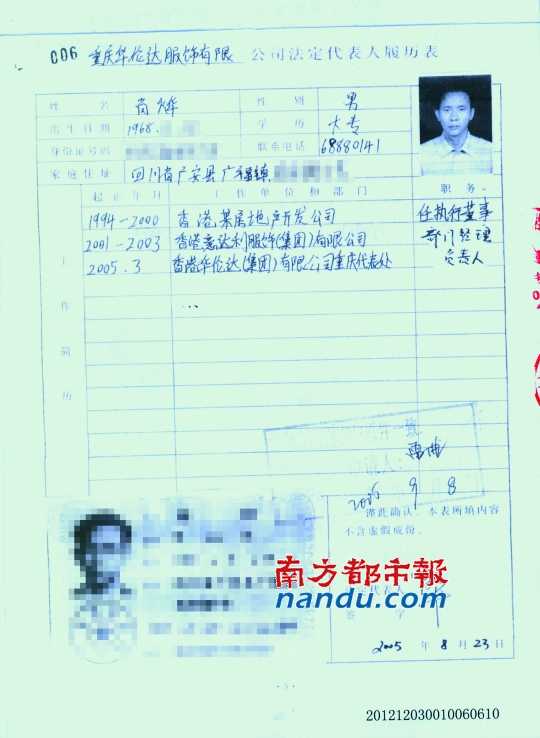 006 重庆华伦达服饰有限 公司法定代表人履历表
姓 名 肖烨 性 别 男
出生日期 1968. 学 历 大专
身份证号码 联系电话 68880141
家庭住址 四川省广安县广福镇
起止年月 工作单位和部门 职务
1994-2000 香港某房地产开发公司 任执行董事
2001-2003 香港意达利服饰(集团)有限公司 部门经理
2005.3 香港华伦达(集团)有限公司重庆代表处 负责人
工作简历
...
9 8
谨此确认,本表所填内容
不含虚假成份。
南方都市報
nandu.com
定代表人
签 字
2005 年 8 月 23 日
201212030010060610